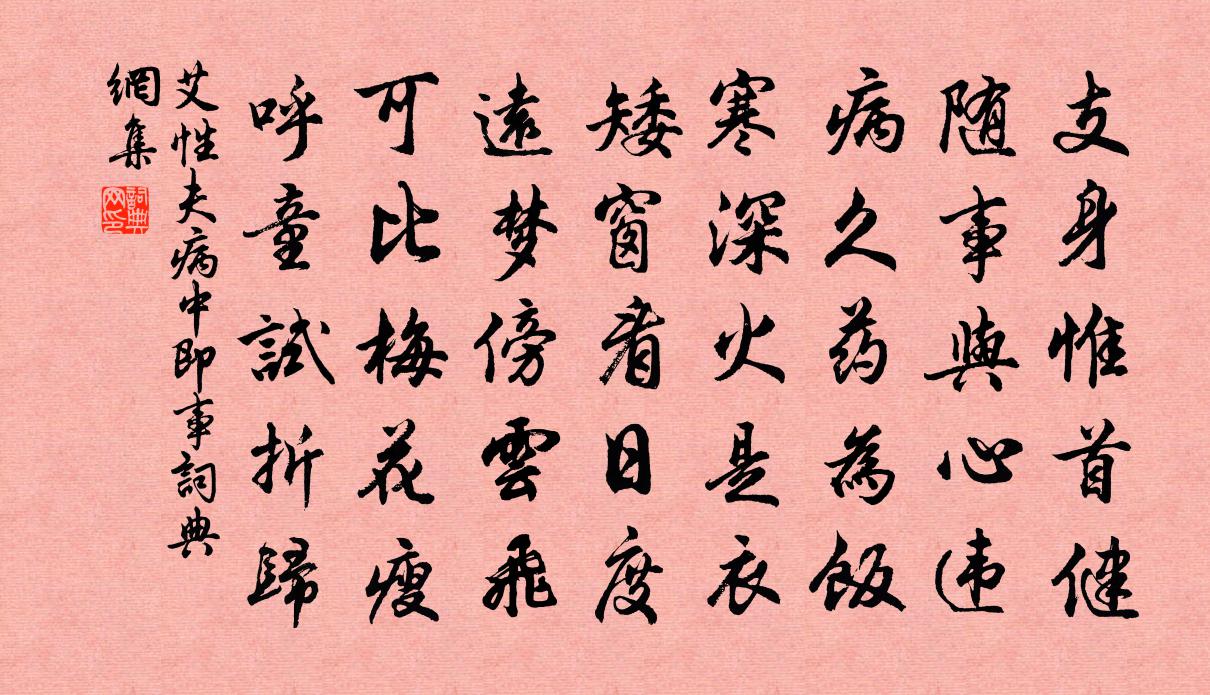 支身惟首健
随事與心违
病久药為飯
寒深火是衣
矮窗看日度
遠梦傍雲飛
可比梅花瘦
呼童試折歸
艾性夫病中即事詞典
網集
詞典网印